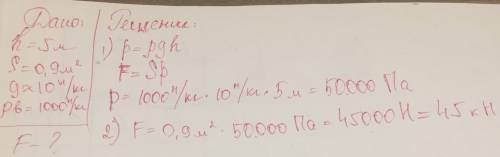 Дано:
h = 5 м
S = 0,9 м²
g ≈ 10 н/кг
ρв = 1000 н/кг
F - ?
Решение:
1) p = ρgh
F = Sp
p = 1000 н/кг · 10 н/кг · 5 м = 50000 Па
2) F = 0,9 м² · 50000 Па = 45000 Н = 45 кН